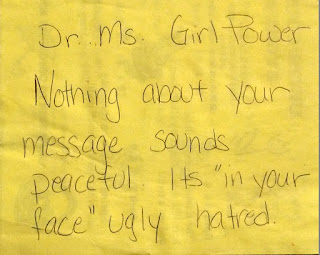 Dr. Ms. Girl Power
Nothing about your
message sounds
peaceful. Its "in your
face" ugly hatred.